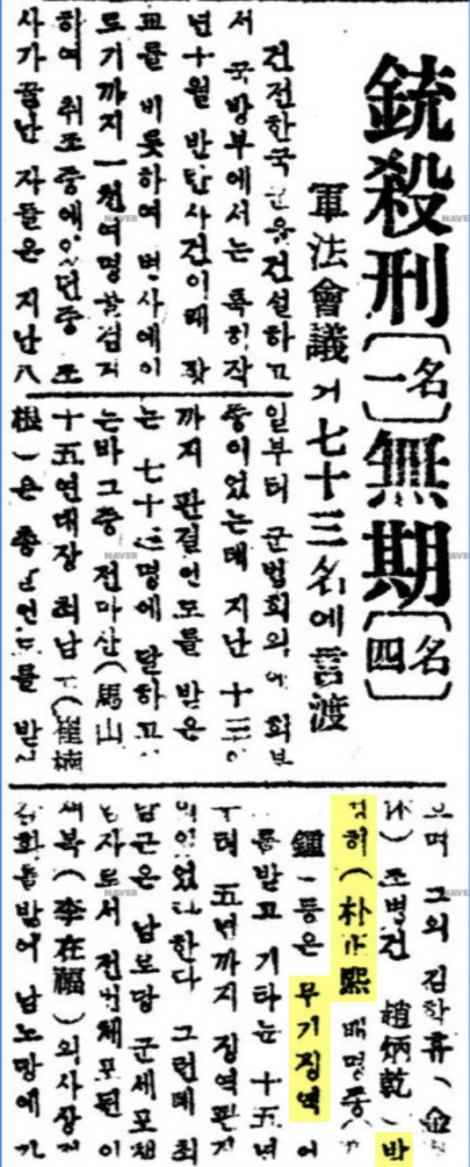 銃殺刑(一名)無期(四名)
軍法會議거七十三名에言渡
건전한국군을건설하고
서 국방부에서는 특히작
년十월 반란사건이래
교를 비롯하여 병사에이
르기까지 一천여명을검거
하여 취조 중에있던중 조
사가끝난 자들은 지난八
일부터 군법회의에 회부
중이었는데 지난 十三일
까지 판결언도를 받은
는 七十三명에 달하고
는바그중 전마산(馬山
十五연대장 최남근(崔楠
根)은 총살언도를 받
으며 그외 (金
休) 조병건 趙炳乾) 박
정희(朴正熙 배명종(
鍾)등은 무기징역 어
를받고 기타는 十五년
부터 五년까지 징역판결
이있었다한다 그런데 최
남근은 남로당 군세포책
임자로서 전번체포된 이
재복(李在福)의사상적
감화를받어 남노당에 가
NAVER
NAVER
NAVER
NAVER
NAVER
NAVER
NAVER
NAVER
NAVER
NAVER
NAVER
NAVER